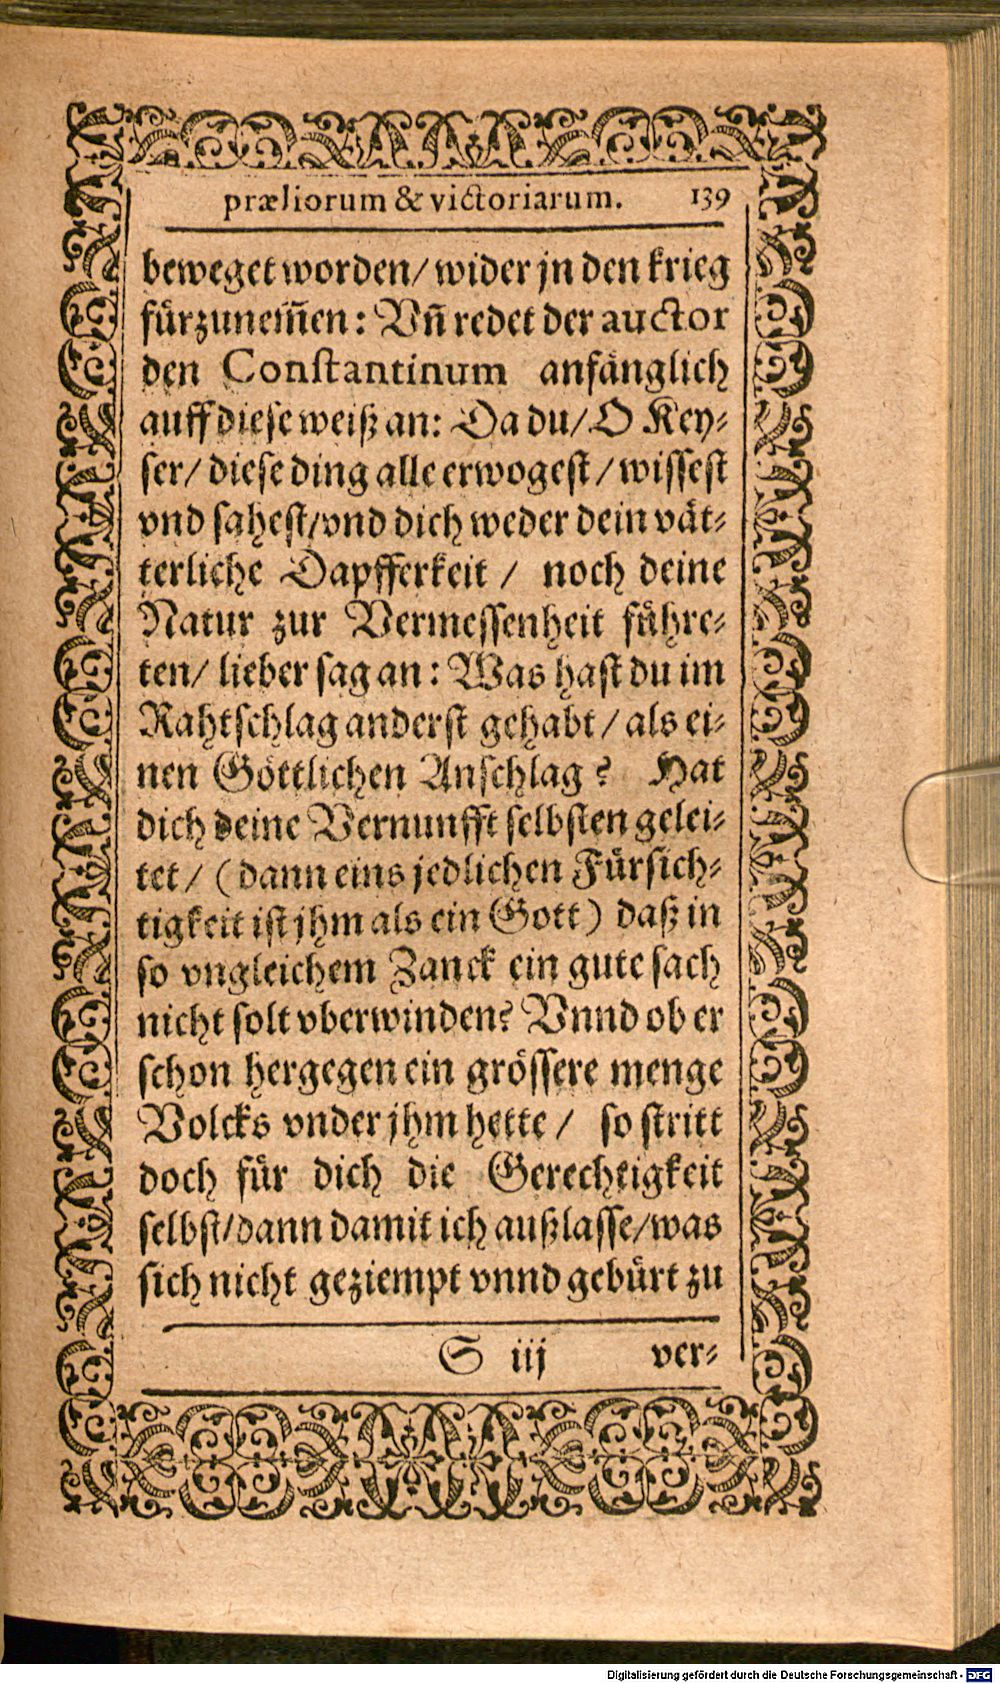 præliorum & victoriarum. 139
beweget worden/ wider jn den krieg
fürzunem̃en: Vñ redet der auctor
den Constantinum anfänglich
auff diese weiß an: Da du/ O Key-
ser/ diese ding alle erwogest/ wissest
vnd sahest/ vnd dich weder dein vät-
terliche Dapfferkeit / noch deine
Natur zur Vermessenheit führe-
ten/ lieber sag an: Was hast du im
Rahtschlag anderst gehabt/ als ei-
nen Göttlichen Anschlag? Hat
dich deine Vernunfft selbsten gelei-
tet/ (dann eins jedlichen Fürsich-
tigkeit ist jhm als ein Gott) daß in
so vngleichem Zanck ein gute sach
nicht solt vberwinden? Vnnd ob er
schon hergegen ein grössere menge
Volcks vnder jhm hette / so stritt
doch für dich die Gerechtigkeit
selbst/ dann damit ich außlasse/ was
sich nicht geziempt vnnd gebürt zu
S iij ver-
Digitalisierung gefördert durch die Deutsche Forschungsgemeinschaft - DFG